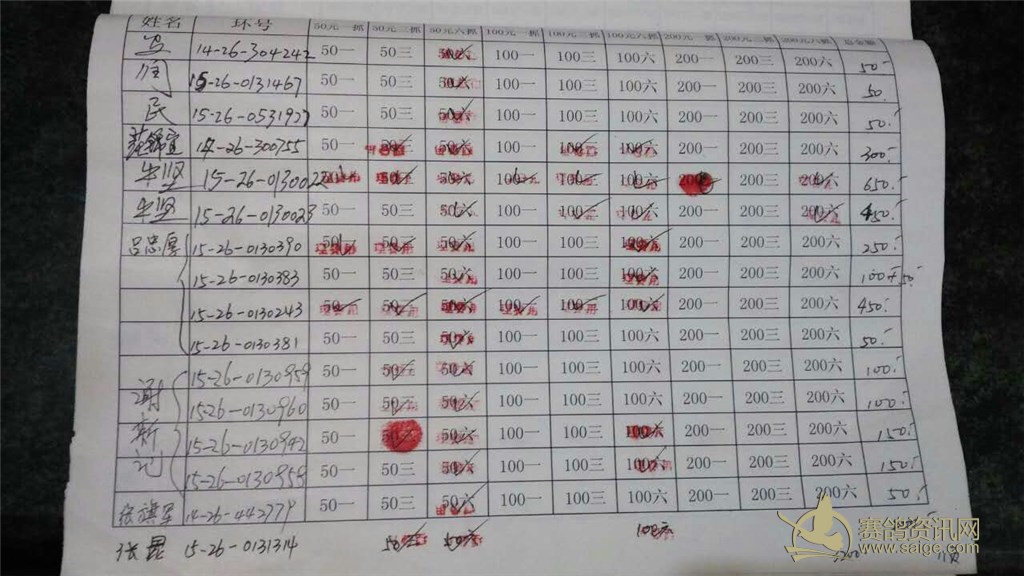 姓名 环号 50元一郎 50元三郎 50元六郎 100元一郎 100元三郎 100元六郎 200元一郎 200元三郎 200元六郎 总金额
14-26-304242 50一 50三 50六 100一 100三 100六 200一 200三 200六 50.-
15-26-0131467 50一 50三 50六 100一 100三 100六 200一 200三 200六 50.-
民 15-26-0531927 50一 50三 50六 100一 100三 100六 200一 200三 200六 50.-
14-26-300755 50一 50三 50六 100一 100三 100六 200一 200三 200六 300.-
15-26-0130022 50一 50三 50六 100一 100三 100六 200一 200三 200六 650.-
15-26-0130023 50一 50三 50六 100一 100三 100六 200一 200三 200六 450.-
吕忠厚 15-26-0130390 50一 50三 50六 100一 100三 100六 200一 200三 200六 250.-
15-26-0130383 50一 50三 50六 100一 100三 100六 200一 200三 200六 100+50.-
15-26-0130243 50一 50三 50六 100一 100三 100六 200一 200三 200六 450.-
15-26-0130381 50一 50三 50六 100一 100三 100六 200一 200三 200六 50.-
15-26-0130959 50一 50三 50六 100一 100三 100六 200一 200三 200六 100.-
谢 15-26-0130960 50一 50三 50六 100一 100三 100六 200一 200三 200六 100.-
新 15-26-0130942 50一 50三 50六 100一 100三 100六 200一 200三 200六 150.-
记 15-26-0130958 50一 50三 50六 100一 100三 100六 200一 200三 200六 150.-
徐旗军 14-26-442779 50一 50三 50六 100一 100三 100六 200一 200三 200六 50.-
张昆 15-26-0131314 50三 50六 100六
赛鸽资讯网
www.saige.com